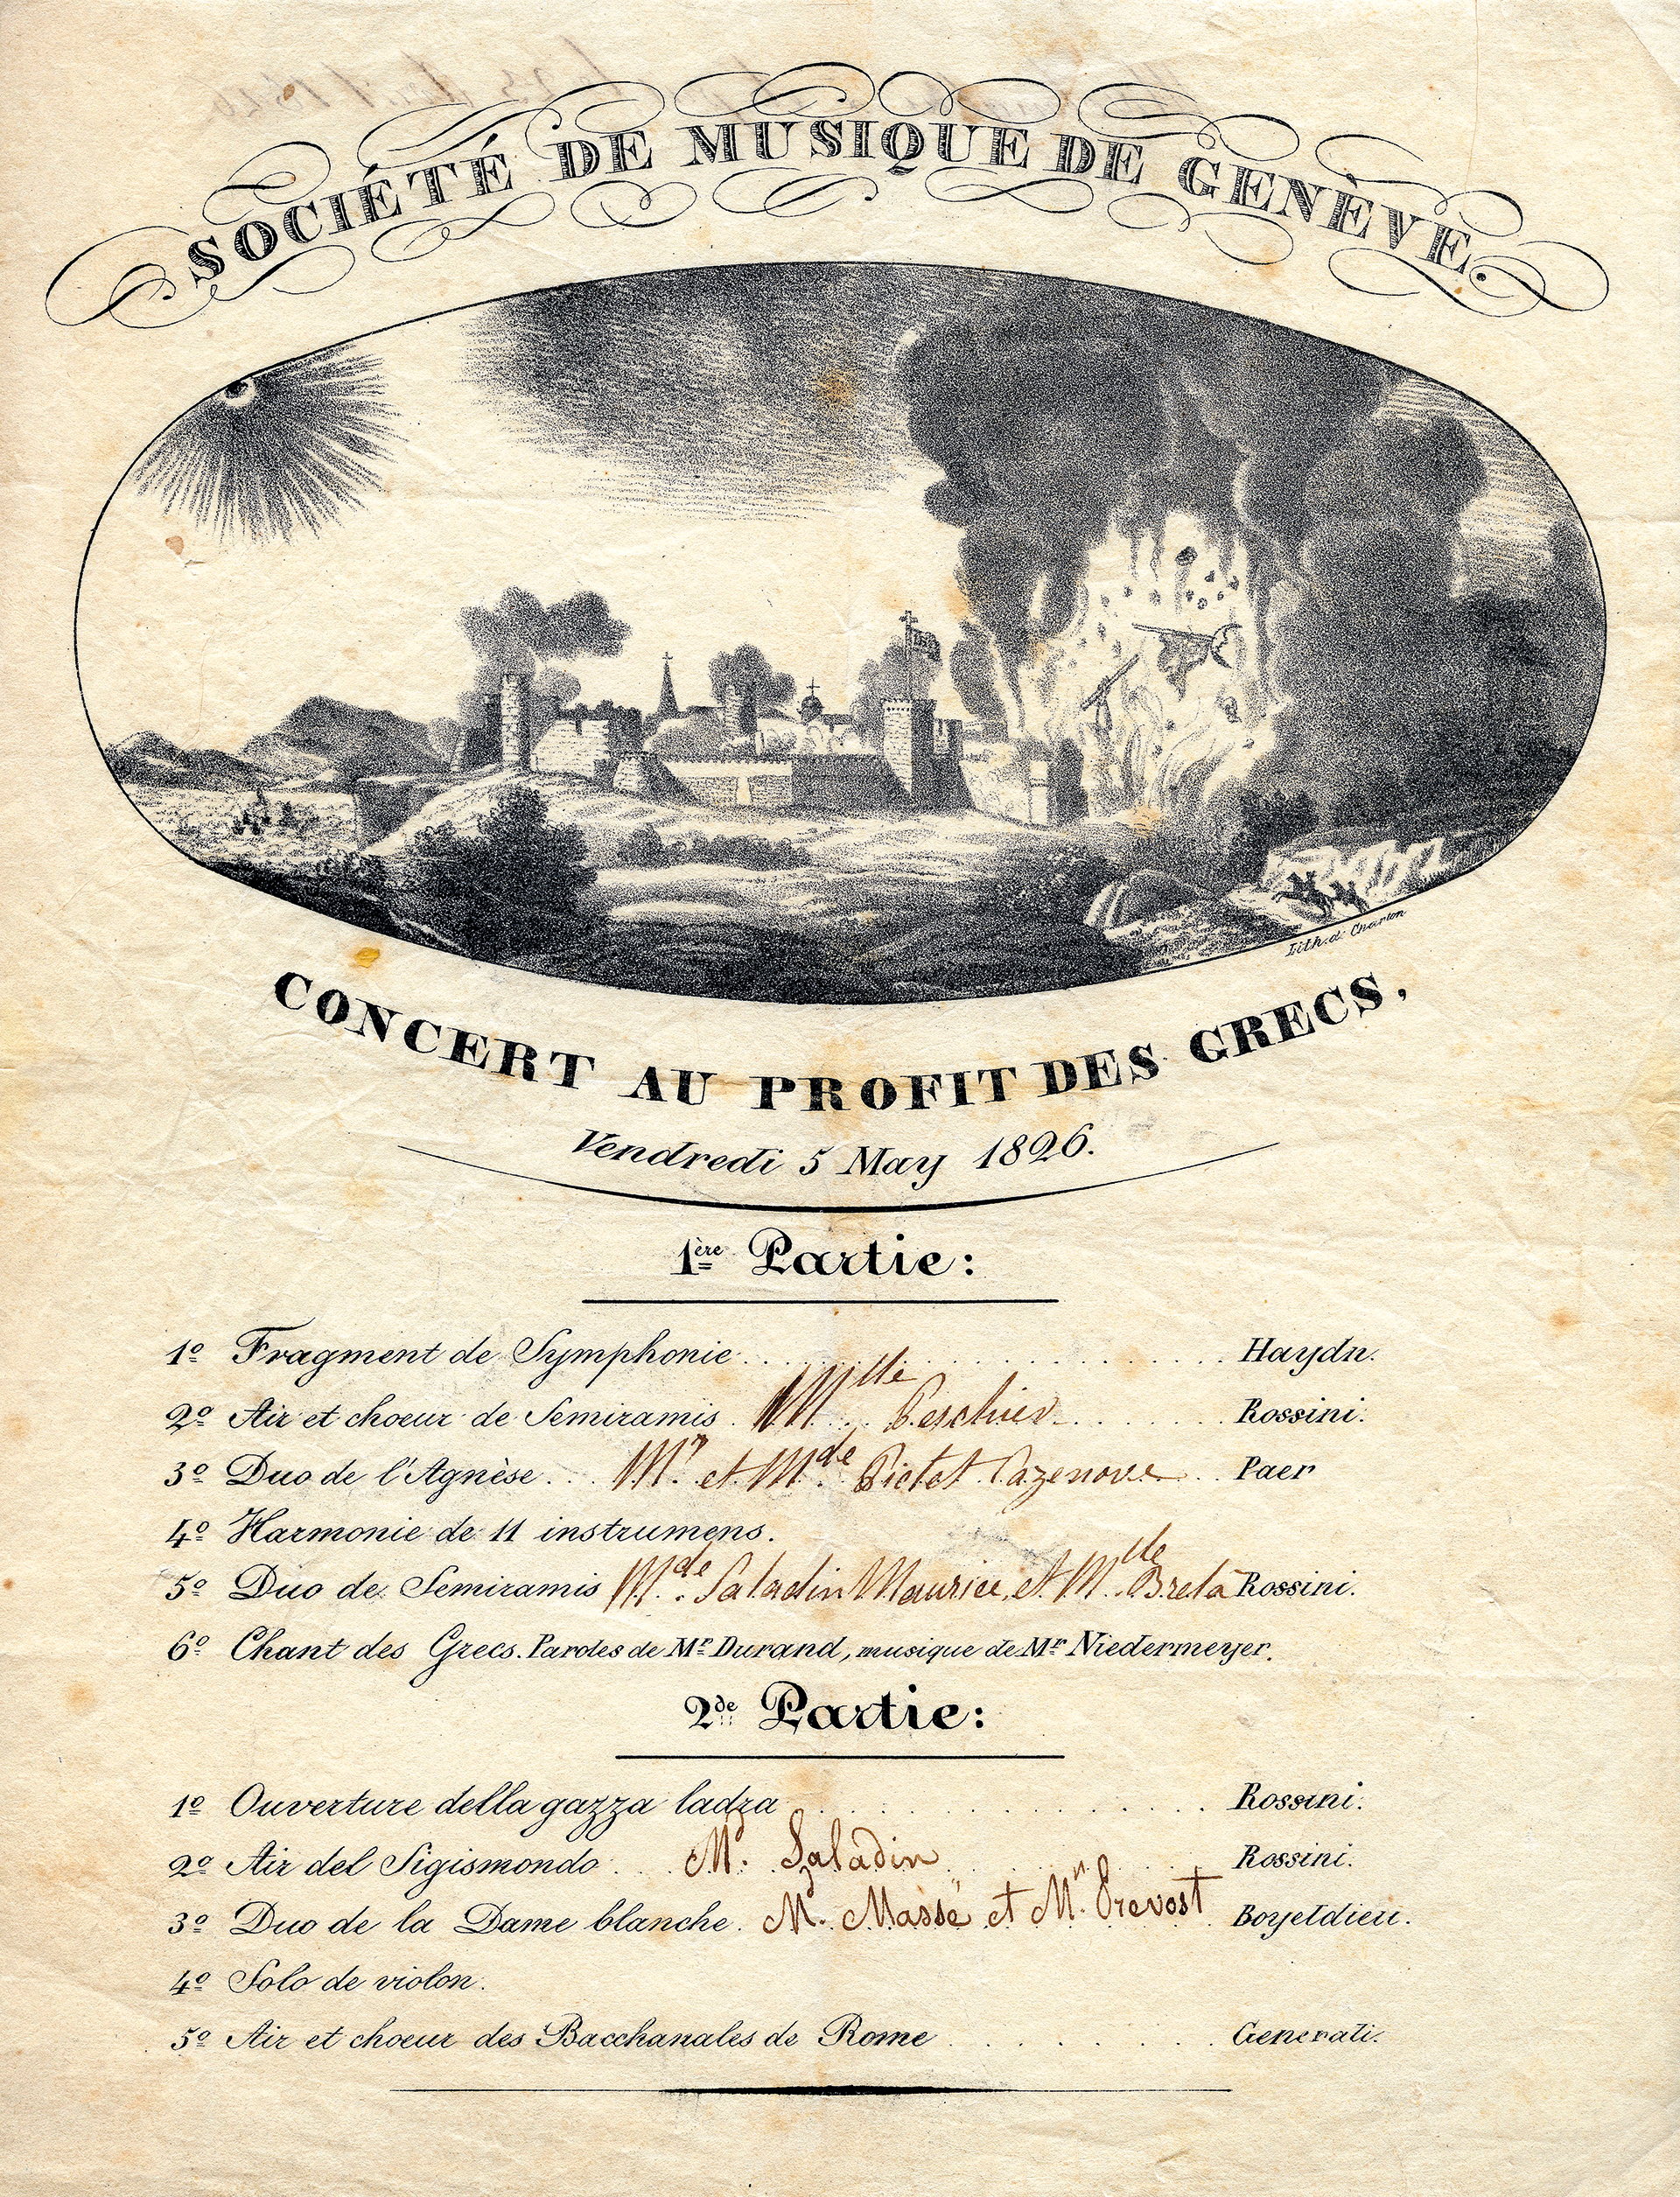 SOCIÉTÉ DE MUSIQUE DE GENÈVE.
Lith. de Charton
CONCERT AU PROFIT DES GRECS,
Vendredi 5 May 1826.
1ère Partie:
1º Fragment de Symphonie. . . . . . . . . . . . . . . . Haydn.
2º Air et choeur de Semiramis . Mlle Peschier . . . . . Rossini.
3º Duo de l'Agnèse . . . Mr. et Mde. Pictet Cazenove . . Paer
4º Harmonie de 11 instrumens.
5º Duo de Semiramis Mde. Saladin Maurice, et Mlle. Brela Rossini.
6º Chant des Grecs. Paroles de Mr. Durand, musique de Mr. Niedermeyer.
2de Partie:
1º Ouverture della gazza ladra . . . . . . . . . . . . Rossini.
2º Air del Sigismondo . . . Mr. Saladin . . . . . . Rossini.
3º Duo de la Dame blanche. Mr. Massé et Mr. Prevost . Boyeldieu.
4º Solo de violon.
5º Air et choeur des Bacchanales de Rome . . . . . . . . Generali.